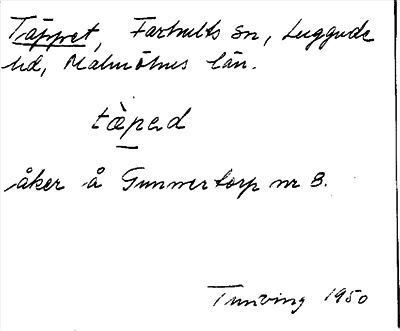 Täppet, Farhults sn, Luggude
hd, Malmöhus län.
tæ̀pəd
åker å Gunnertorp nr 3.
Tunving 1950